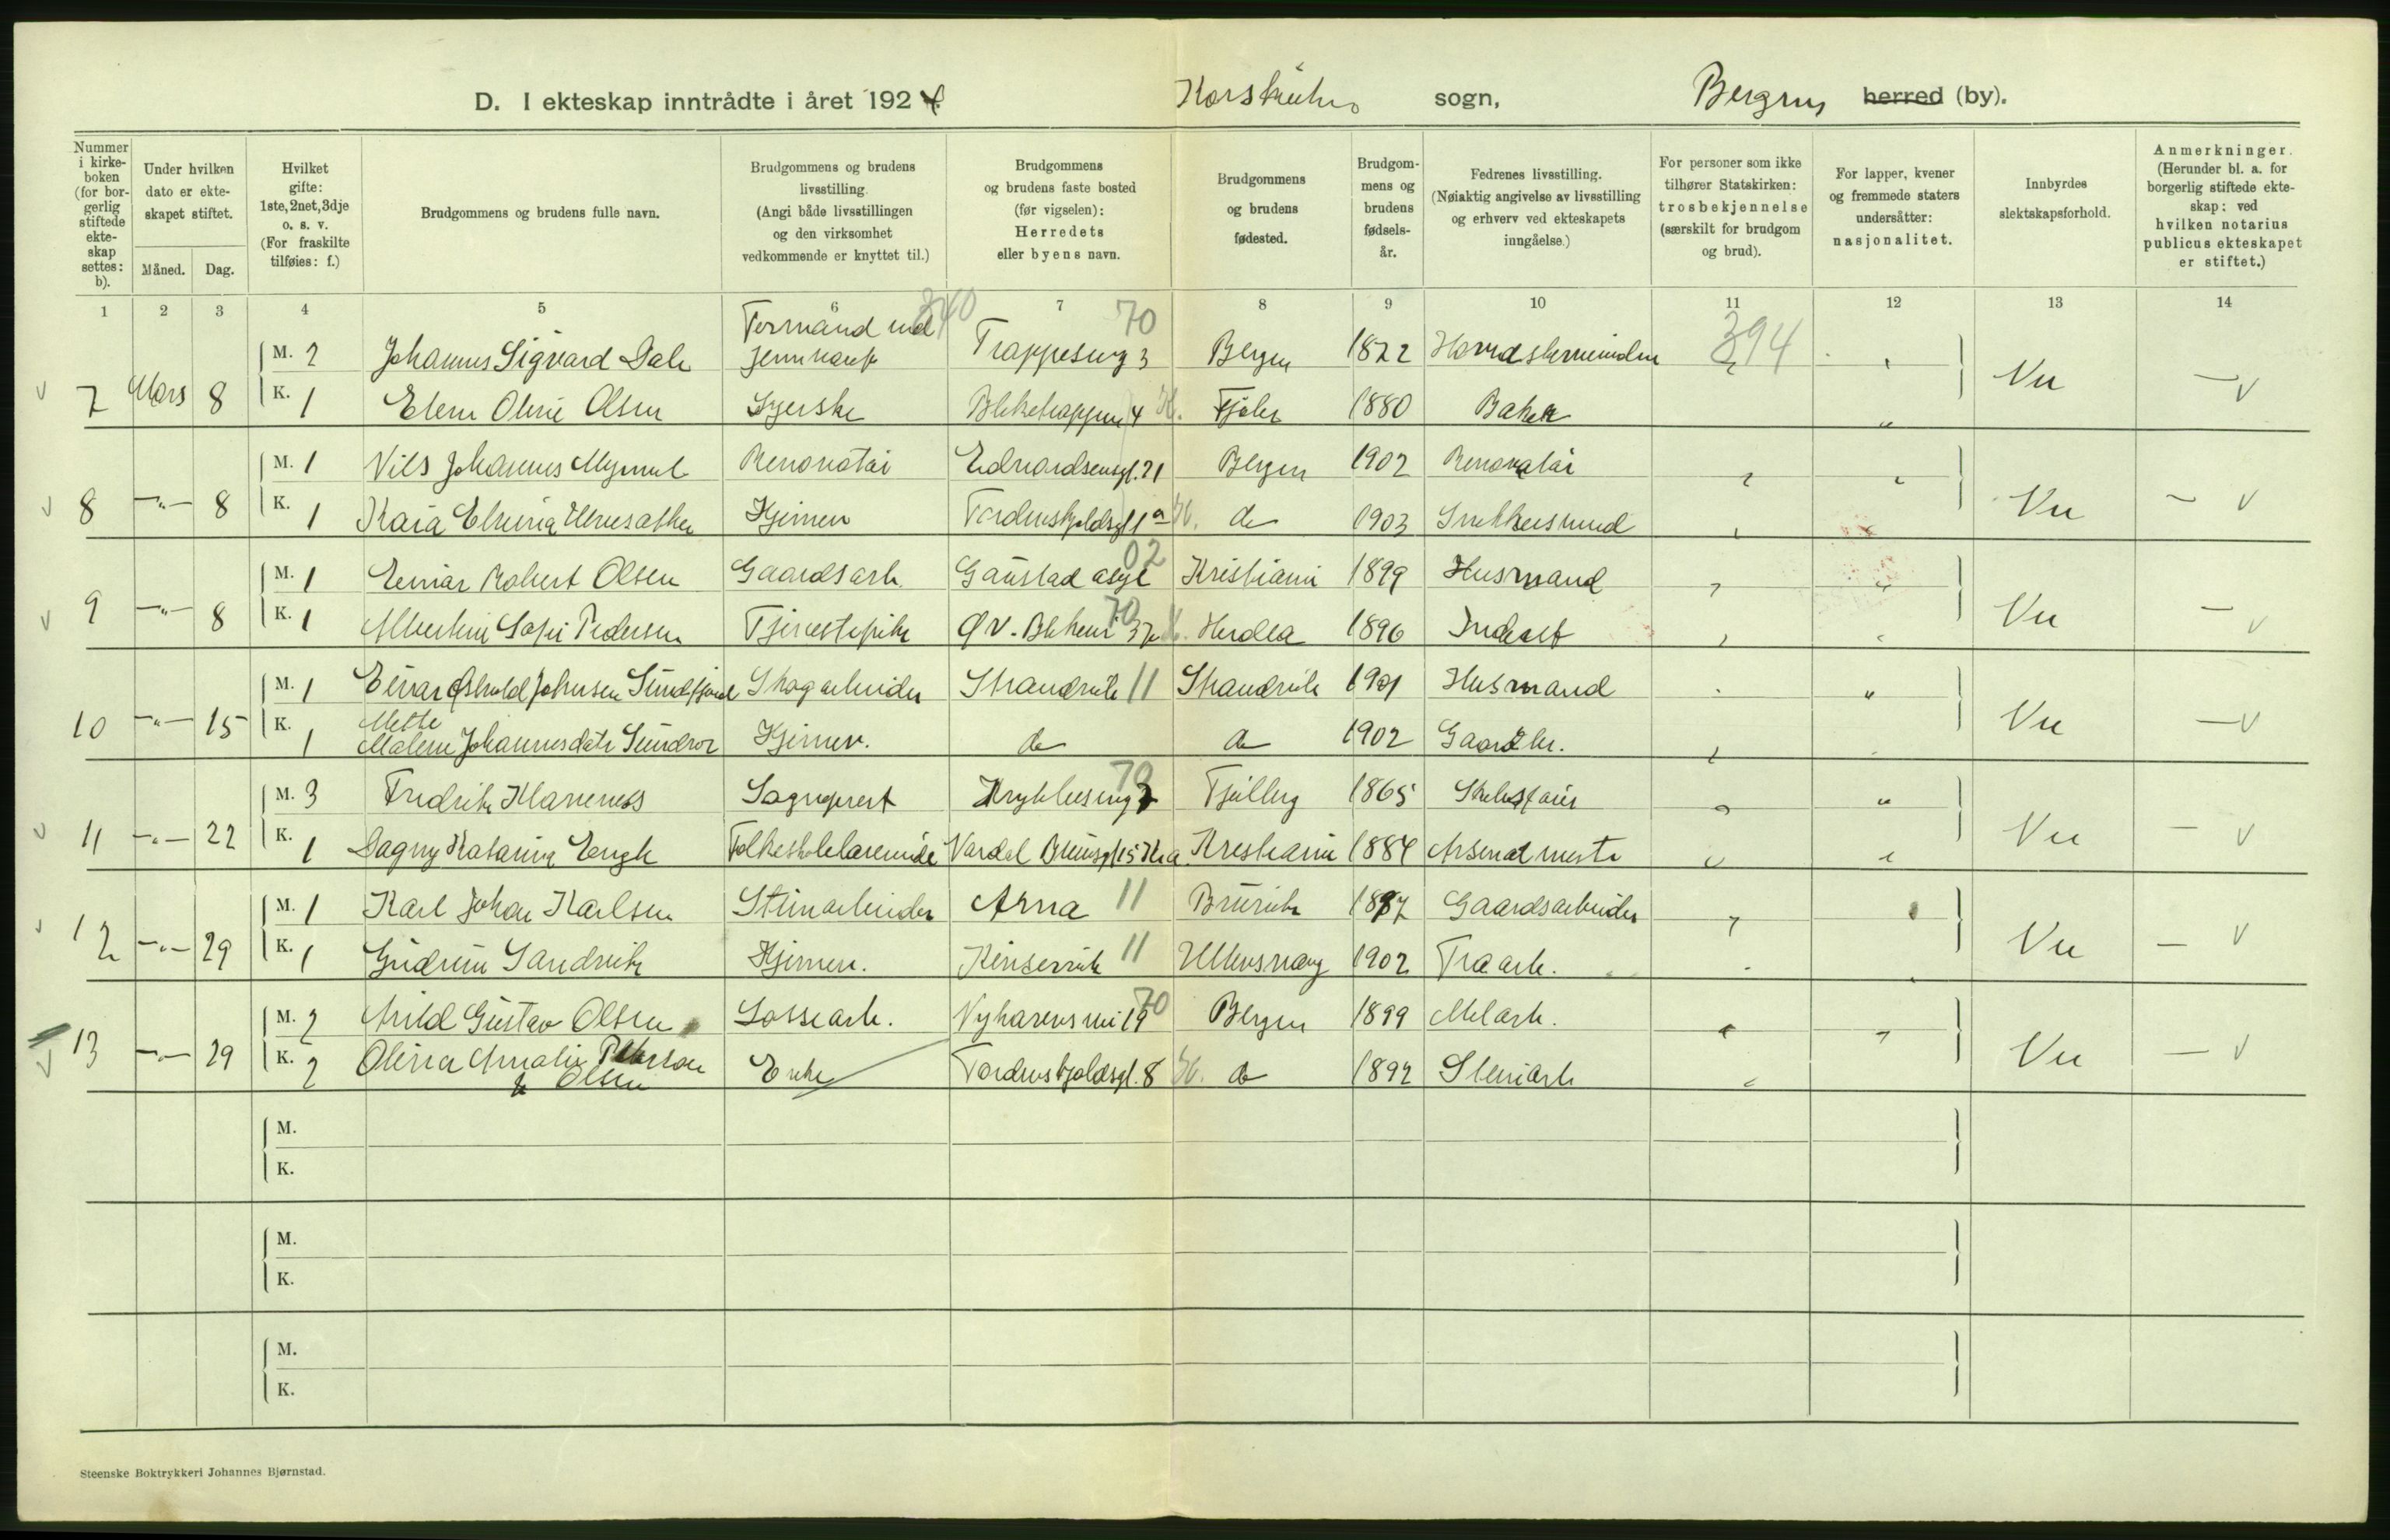 D. I ekteskap inntrådte i året 1924. Korskirken sogn, Bergens herred (by).
Nummer i kirkeboken (for borgerlig stiftede ekteskap settes: b).
Under hvilken dato er ekteskapet stiftet.
Måned. Dag.
Hvilket gifte: 1ste, 2net, 3dje o. s. v. (For fraskilte tilføies: f.)
Brudgommens og brudens fulle navn.
Brudgommens og brudens livsstilling. (Angi både livsstillingen og den virksomhet vedkommende er knyttet til.)
Brudgommens og brudens faste bosted (før vigselen): Herredets eller byens navn.
Brudgommens og brudens fødested.
Brudgommens og brudens fødselsår.
Fedrenes livsstilling. (Nøiaktig angivelse av livsstilling og erhverv ved ekteskapets inngåelse.)
For personer som ikke tilhører Statskirken: trosbekjennelse (særskilt for brudgom og brud).
For lapper, kvener og fremmede staters undersåtter: nasjonalitet.
Innbyrdes slektskapsforhold.
Anmerkninger. (Herunder bl. a. for borgerlig stiftede ekteskap: ved hvilken notarius publicus ekteskapet er stiftet.)
1 2 3 4 5 6 7 8 9 10 11 12 13 14
Formand ved 70 394
M. 2 Johannes Sigvard Dale jernvaref Trappesmug 3 Bergen 1872
7 Mars 8 K. 1 Elen Oline Olsen Syerske Bleketrappen 4 Fjaler 1880 Baker " Nei — v
M. 1 Nils Johannes Myrmel Renovatør Edvardsensgt. 21 Bergen 1902 Renovatør
8 —"— 8 K. 1 Kaia Hjemmev Tordenskjoldsgt 1a do 1903 Snekkersvend Nei — v
02
M. 1 Einar Robert Olsen Gaardsarb. Gaustad asyl Kristiania 1899 Husmand
70
9 —"— 8 K. 1 Albertine Sofie Pedersen Tjenestepike Herdla 1896 Inderst Nei — v
M. 1 Einar Johnsen Sundfjord Skogarbeider Strandvik 11 Strandvik 1901 Husmand "
Mette
10 —"— 15 K. 1 Malene Johannesdatr Sundvor Hjemmev. do do 1902 Gaardbr. Nei — v
70
M. 3 Fredrik Klaveness Sogneprest Fjellberg 1865 "
11 —"— 22 K. 1 Dagny Katarina Engh Folkeskolelærerinde Kristiania 1884 Arsenalmester Nei — v
M. 1 Karl Johan Karlsen Stenarbeider Arna 11 Bruvik 1887 Gaardsarbeider
12 —"— 29 K. 1 Gudrun Sandvik Hjemmev. Kinservik 11 Ullensvang 1902 Træarb. Nei — v
70
M. 2 Arild Gustav Olsen Lossearb. Nyhavnsvei 19 Bergen 1899 Mølarb.
13 —"— 29 K. 2 Olena Amalie Petterson Enke Tordenskjoldsgt. 8 do 1892 Stenarb Nei — v
f Olsen
M.
K.
M.
K.
M.
K.
Steenske Boktrykkeri Johannes Bjørnstad.